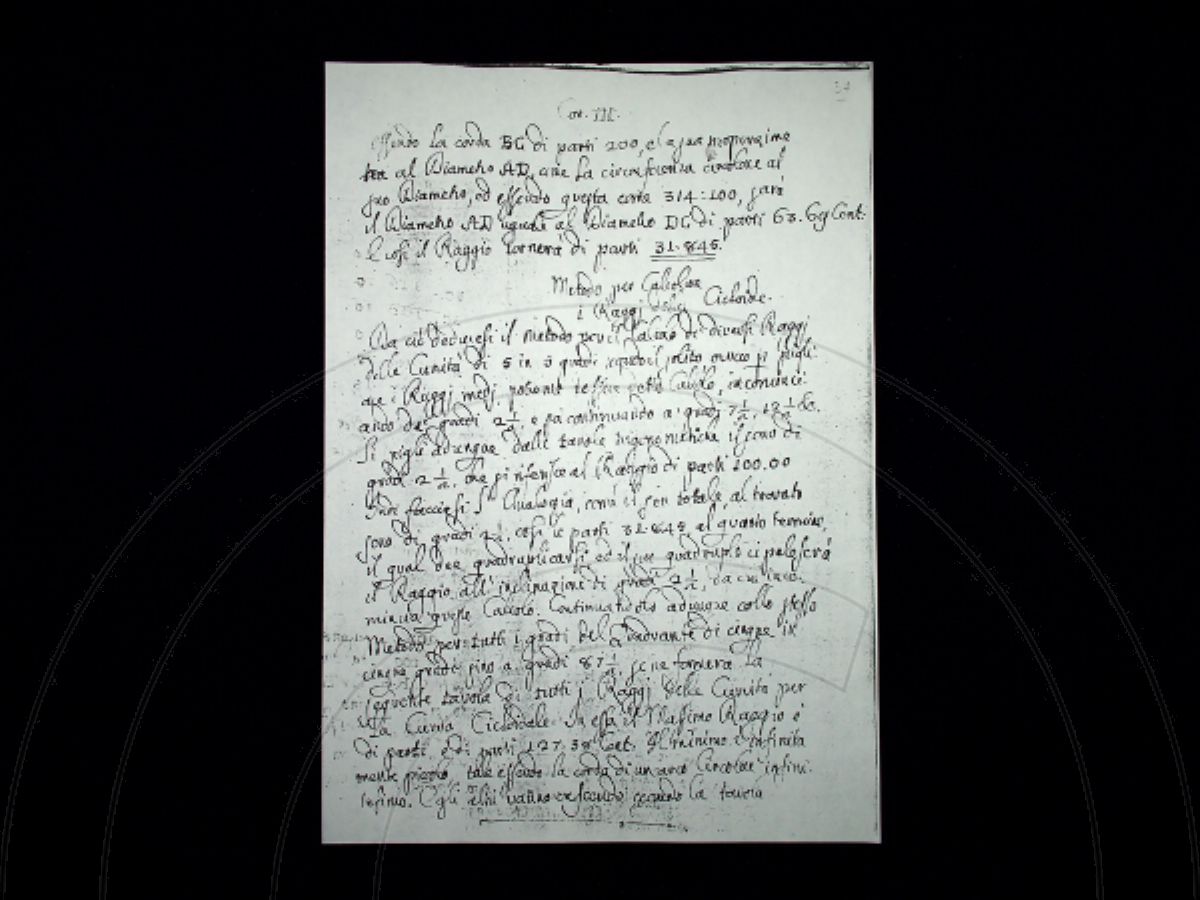 37
Con. III.
essendo la corda BC di parti 200, e la sua
al Diametro AD, come la circonferenza circolare al
suo Diametro, ed essendo questa come 314:100, sarà
il Diametro AD uguale al Diametro DC di parti 63.69 Cent.
E così il Raggio tornerà di parti 31.845.
Metodo per Calcolare
i Raggi della Cicloide.
Da ciò deducesi il metodo per il Calcolo de diversi Raggi
delle Cunità di 5 in 5 gradi
i Raggi medj possono Calcolo, incominci-
ando dalli gradi 2 1/2, e continuando a gradi 7 1/2, 12 1/2 &c.
Si piglj adunque dalle tavole trigonometriche il seno di
gradi 2 1/2, che si riferisce al Raggio di parti 100.00
Indi facciasi l'Analogia, come il sen totale, al trovato
seno di gradi 2 1/2 così le parti 31.845, al quarto termine,
il qual dee quadruplicarsi, ed il suo quadruplo ci paleserà
il Raggio all'inclinazione di gradi 2 1/2, da cui inco-
mincia questo Calcolo. Continuando adunque collo stesso
Metodo per tutti i gradi del Quadrante di cinque in
cinque gradi sino a gradi 87 1/2, se ne formerà la
seguente tavola di tutti i Raggi delle Cunità per
la Curva Cicloidale. In essa il Massimo Raggio è
di parti 127.38 Cent. Il minimo è infinita
mente piccolo, tale essendo la corda di un arco Circolare infini-
tesimo. E gli altri vanno crescendo secondo la tavola